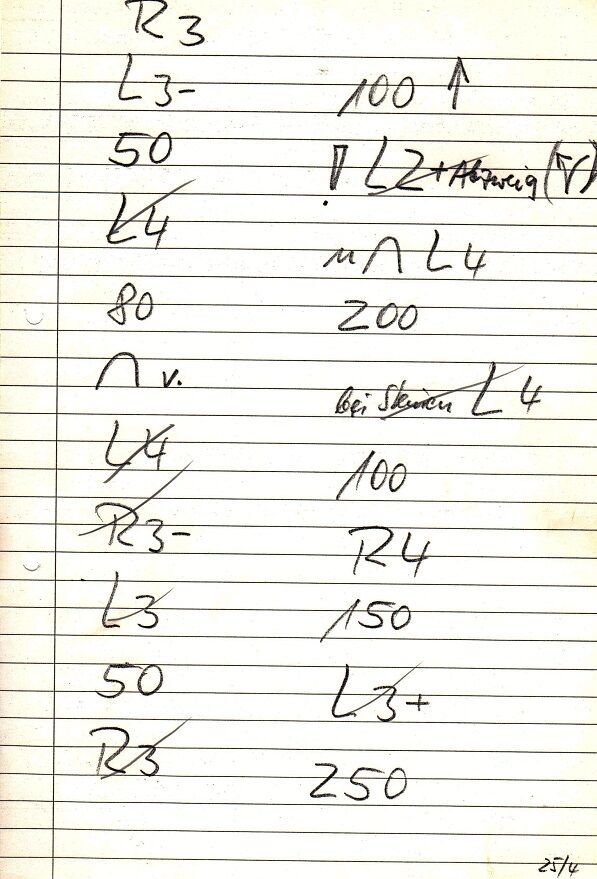 R3
L3-
50
L4
80
∩ v.
L4
R3-
L3
50
R3
100 ↑
! L2 + Abzweig (
∩ L4
200
bei L4
100
R4
150
L3+
250
25/4